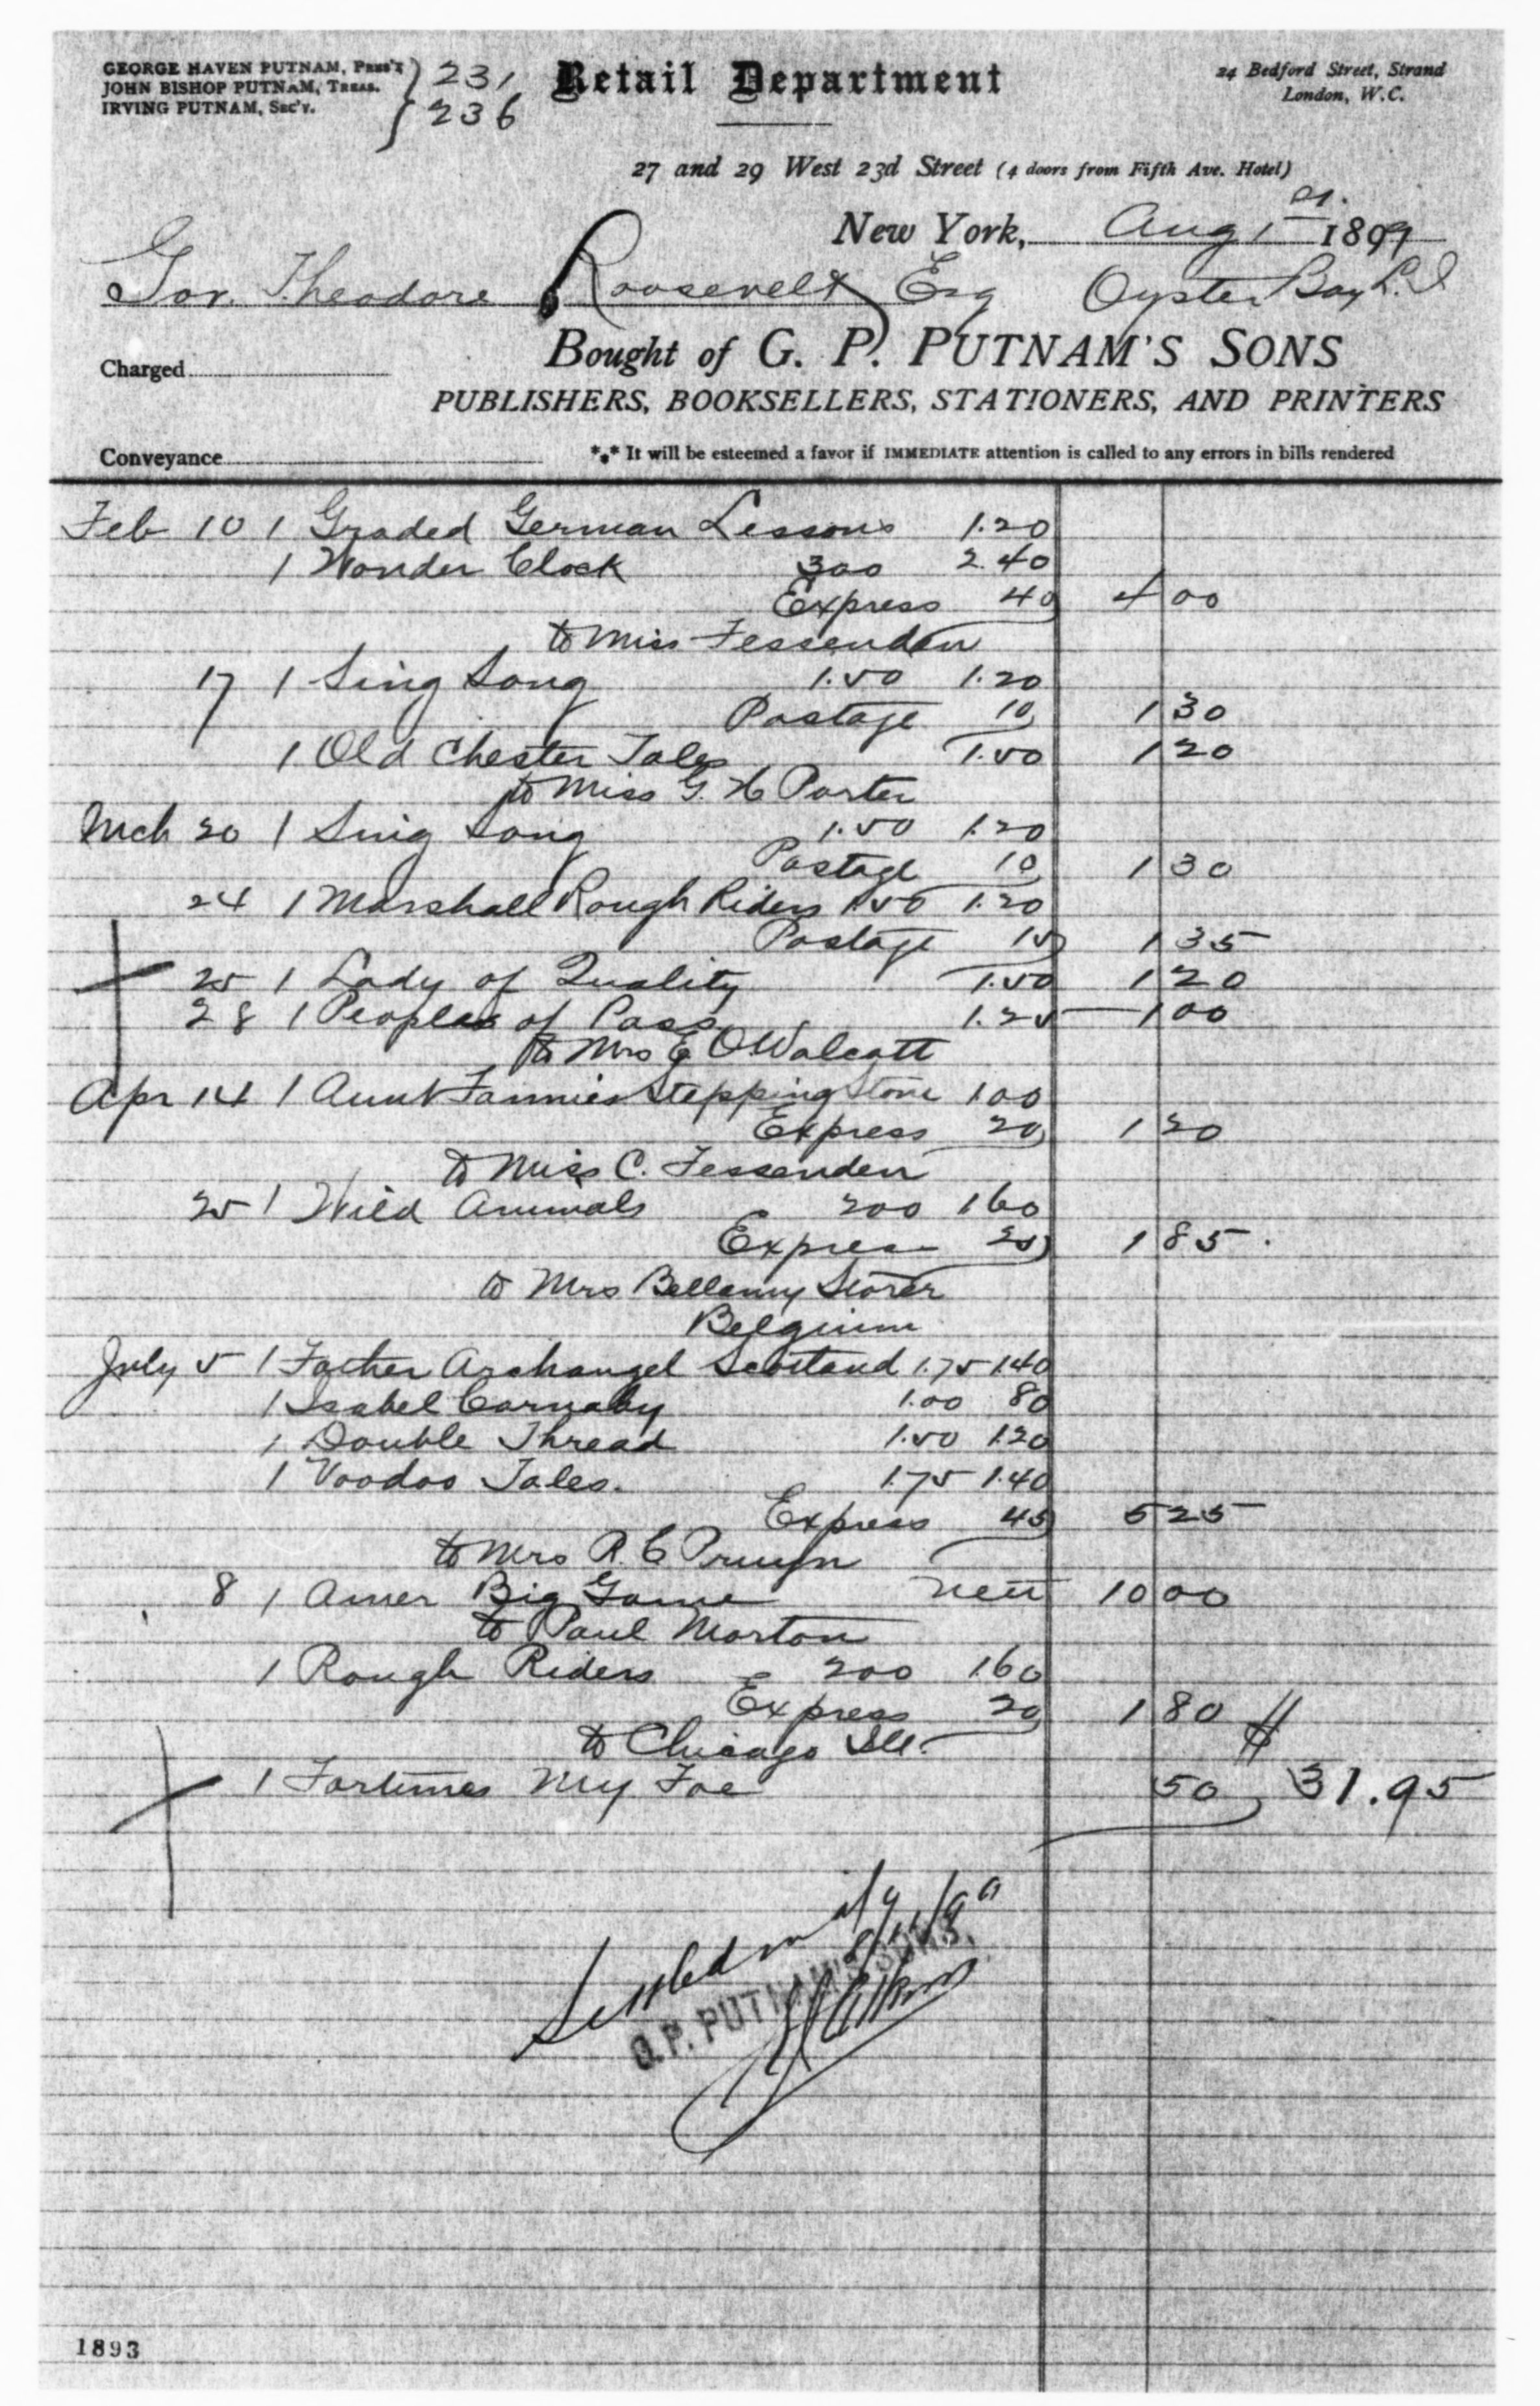 GEORGE HAVEN PUTNAM, Pres't
JOHN BISHOP PUTNAM, Treas.
IRVING PUTNAM, Sec'y.
231
236
Retail Department
24 Bedford Street, Strand
London, W.C.
27 and 29 West 23d Street (4 doors from Fifth Ave. Hotel)
New York, Aug 1st 1899
Gov. Theodore Roosevelt Esq Oyster Bay L.I
Charged
Bought of G. P. PUTNAM'S SONS
PUBLISHERS, BOOKSELLERS, STATIONERS, AND PRINTERS
Conveyance
*** It will be esteemed a favor if IMMEDIATE attention is called to any errors in bills rendered
Feb 10 1 Graded German Lessons 1.20
1 Wonder Clock 300 2.40
Express 40 4 00
to Miss Fessenden
17 1 Sing Song 1.50 1.20
Postage 10 1 30
1 Old Chester Tales 1.50 1 20
to Miss G. H Porter
Mch 20 1 Sing Song 1.50 1.20
Postage 10 1 30
24 1 Marshall Rough Riders 1.50 1.20
Postage 15 1 35
25 1 Lady of Quality 1.50 1 20
28 1 Peoples of Pass 1.25 1 00
to Mrs E O Walcott
Apr 14 1 Aunt Fannies Stepping Stone 100
Express 20 1 20
to Miss C. Fessenden
25 1 Wild Animals 200 160
Express 25 1 85
to Mrs Bellamy Storer
Belgium
July 5 1 Father Archangel Scotland 1.75 1.40
1 Isabel Carnaby 1.00 80
1 Double Thread 1.50 1.20
1 Voodoo Tales. 1.75 1.40
Express 45 5 25
to Mrs R. C Pruyn
8 1 Amer Big Game nett 10 00
to Paul Morton
1 Rough Riders 200 1.60
Express 20 1 80
to Chicago Ill.
1 Fortunes My Foe 50 $ 31.95
Settled
G.P. PUTNAM'S SONS.
1893